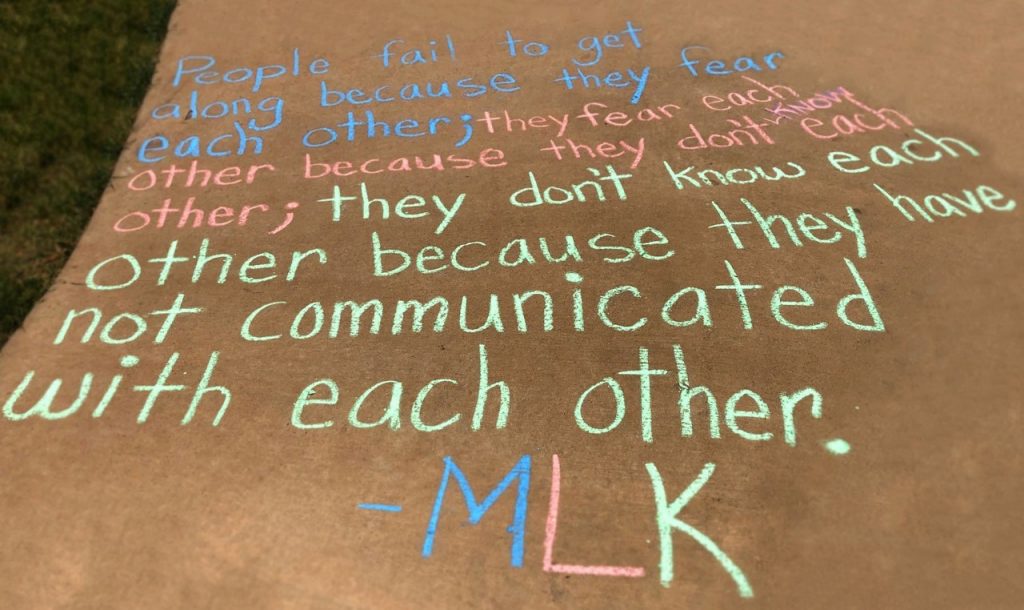 People fail to get
along because they fear
each other; they fear each
other because they don't know each
other; they don't know each
other because they have
not communicated
with each other.
-MLK